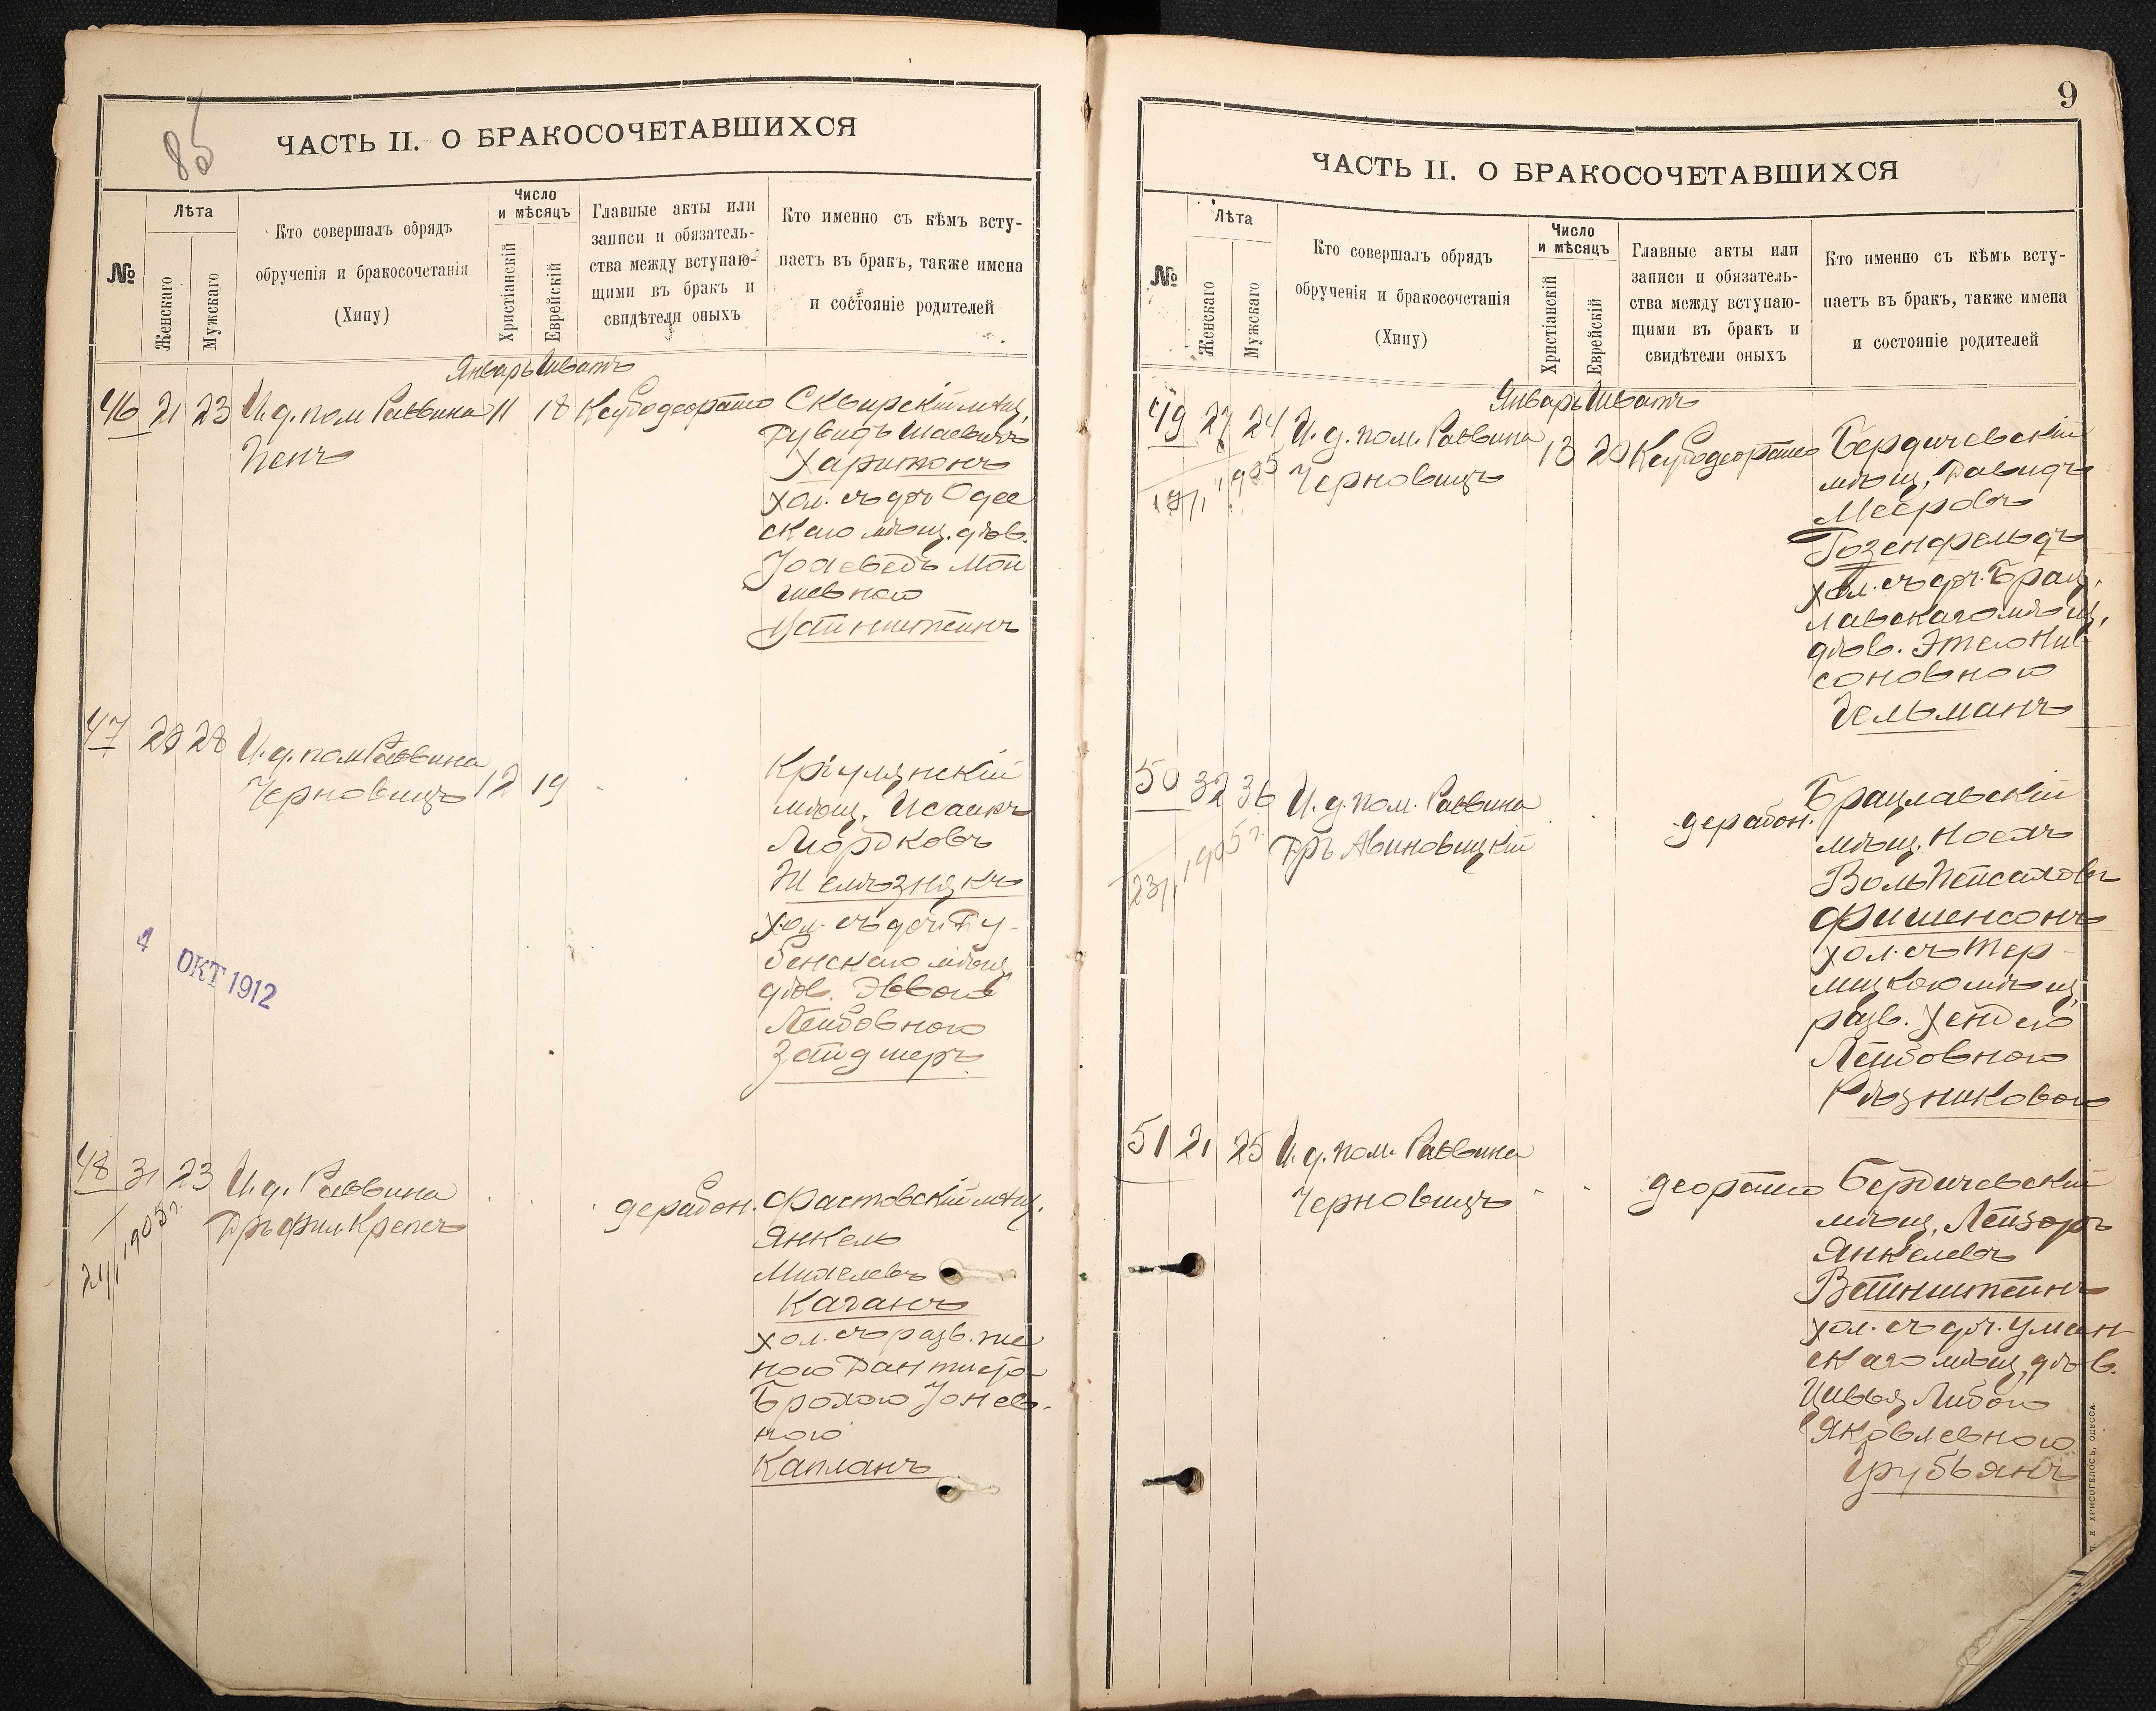 85
ЧАСТЬ II. О БРАКОСОЧЕТАВШИХСЯ
№
Лѣта
Женскаго
Мужскаго
Кто совершалъ обрядъ
обрученія и бракосочетанія
(Хипу)
Число
и мѣсяцъ
Христіанскій
Еврейскій
Главные акты или
записи и обязатель-
ства между вступаю-
щими въ бракъ и
свидѣтели оныхъ
Кто именно съ кѣмъ всту-
паетъ въ бракъ, также имена
и состояніе родителей
Январь Шватъ
46 21 23 И. д. пом Раввина 11 18
Пенъ
Сквирскій мѣщ.
Дувидъ Шаевичъ
Харитонъ
хол. съ доч Одес
скаго мѣщ. дѣв.
Мой
шевною
Вайнштейнъ
47 28 И. д. пом Раввина
Черновицъ 12 19
Кріулянскій
мѣщ. Исаакъ
Мордковъ
Желѣзнякъ
хол. съ доч. Ду-
бенскаго мѣщ
дѣв.
Лейбовною
Зайдшеръ
4 ОКТ 1912
48 31 23 И. д. Раввина
Дръ Фил Крепсъ
21/1 1905 г.
дерабон. Фастовскій мѣщ.
Янкель
Михелевъ
Каганъ
хол. съ разв. же
ною Дантиста
Брохою Іонев-
ною
Капланъ
9
ЧАСТЬ II. О БРАКОСОЧЕТАВШИХСЯ
№
Лѣта
Женскаго
Мужскаго
Кто совершалъ обрядъ
обрученія и бракосочетанія
(Хипу)
Число
и мѣсяцъ
Христіанскій
Еврейскій
Главные акты или
записи и обязатель-
ства между вступаю-
щими въ бракъ и
свидѣтели оныхъ
Кто именно съ кѣмъ всту-
паетъ въ бракъ, также имена
и состояніе родителей
Январь Шватъ
49 27 24 И. д. пом. Раввина
Черновицъ 13 20
1905
Бердичевскій
мѣщ. Давидъ
Мееровъ
Розенфельдъ
хол. съ доч. Брац
лавскаго мѣщ.
дѣв. Этею Ни
соновною
Гельманъ
50 32 36 И. д. пом. Раввина
Дръ Авиновицкій
23/1 1905 г.
дерабон.
Брацлавскій
мѣщ. Носехъ
Воль Пейсаховъ
Фишенсонъ
хол. съ Тер-
лицкою мѣщ.
разв. Хендею
Лейбовною
Рѣзниковою
51 21 25 И. д. пом. Раввина
Черновицъ
Бердичевскій
мѣщ. Лейзоръ
Янкелевъ
Вайнштейнъ
хол. съ доч. Уман-
скаго мѣщ. дѣв.
Цивья Либою
Яковлевною
Грубьянъ
ХРИСОГЕЛОСЪ, ОДЕССА.